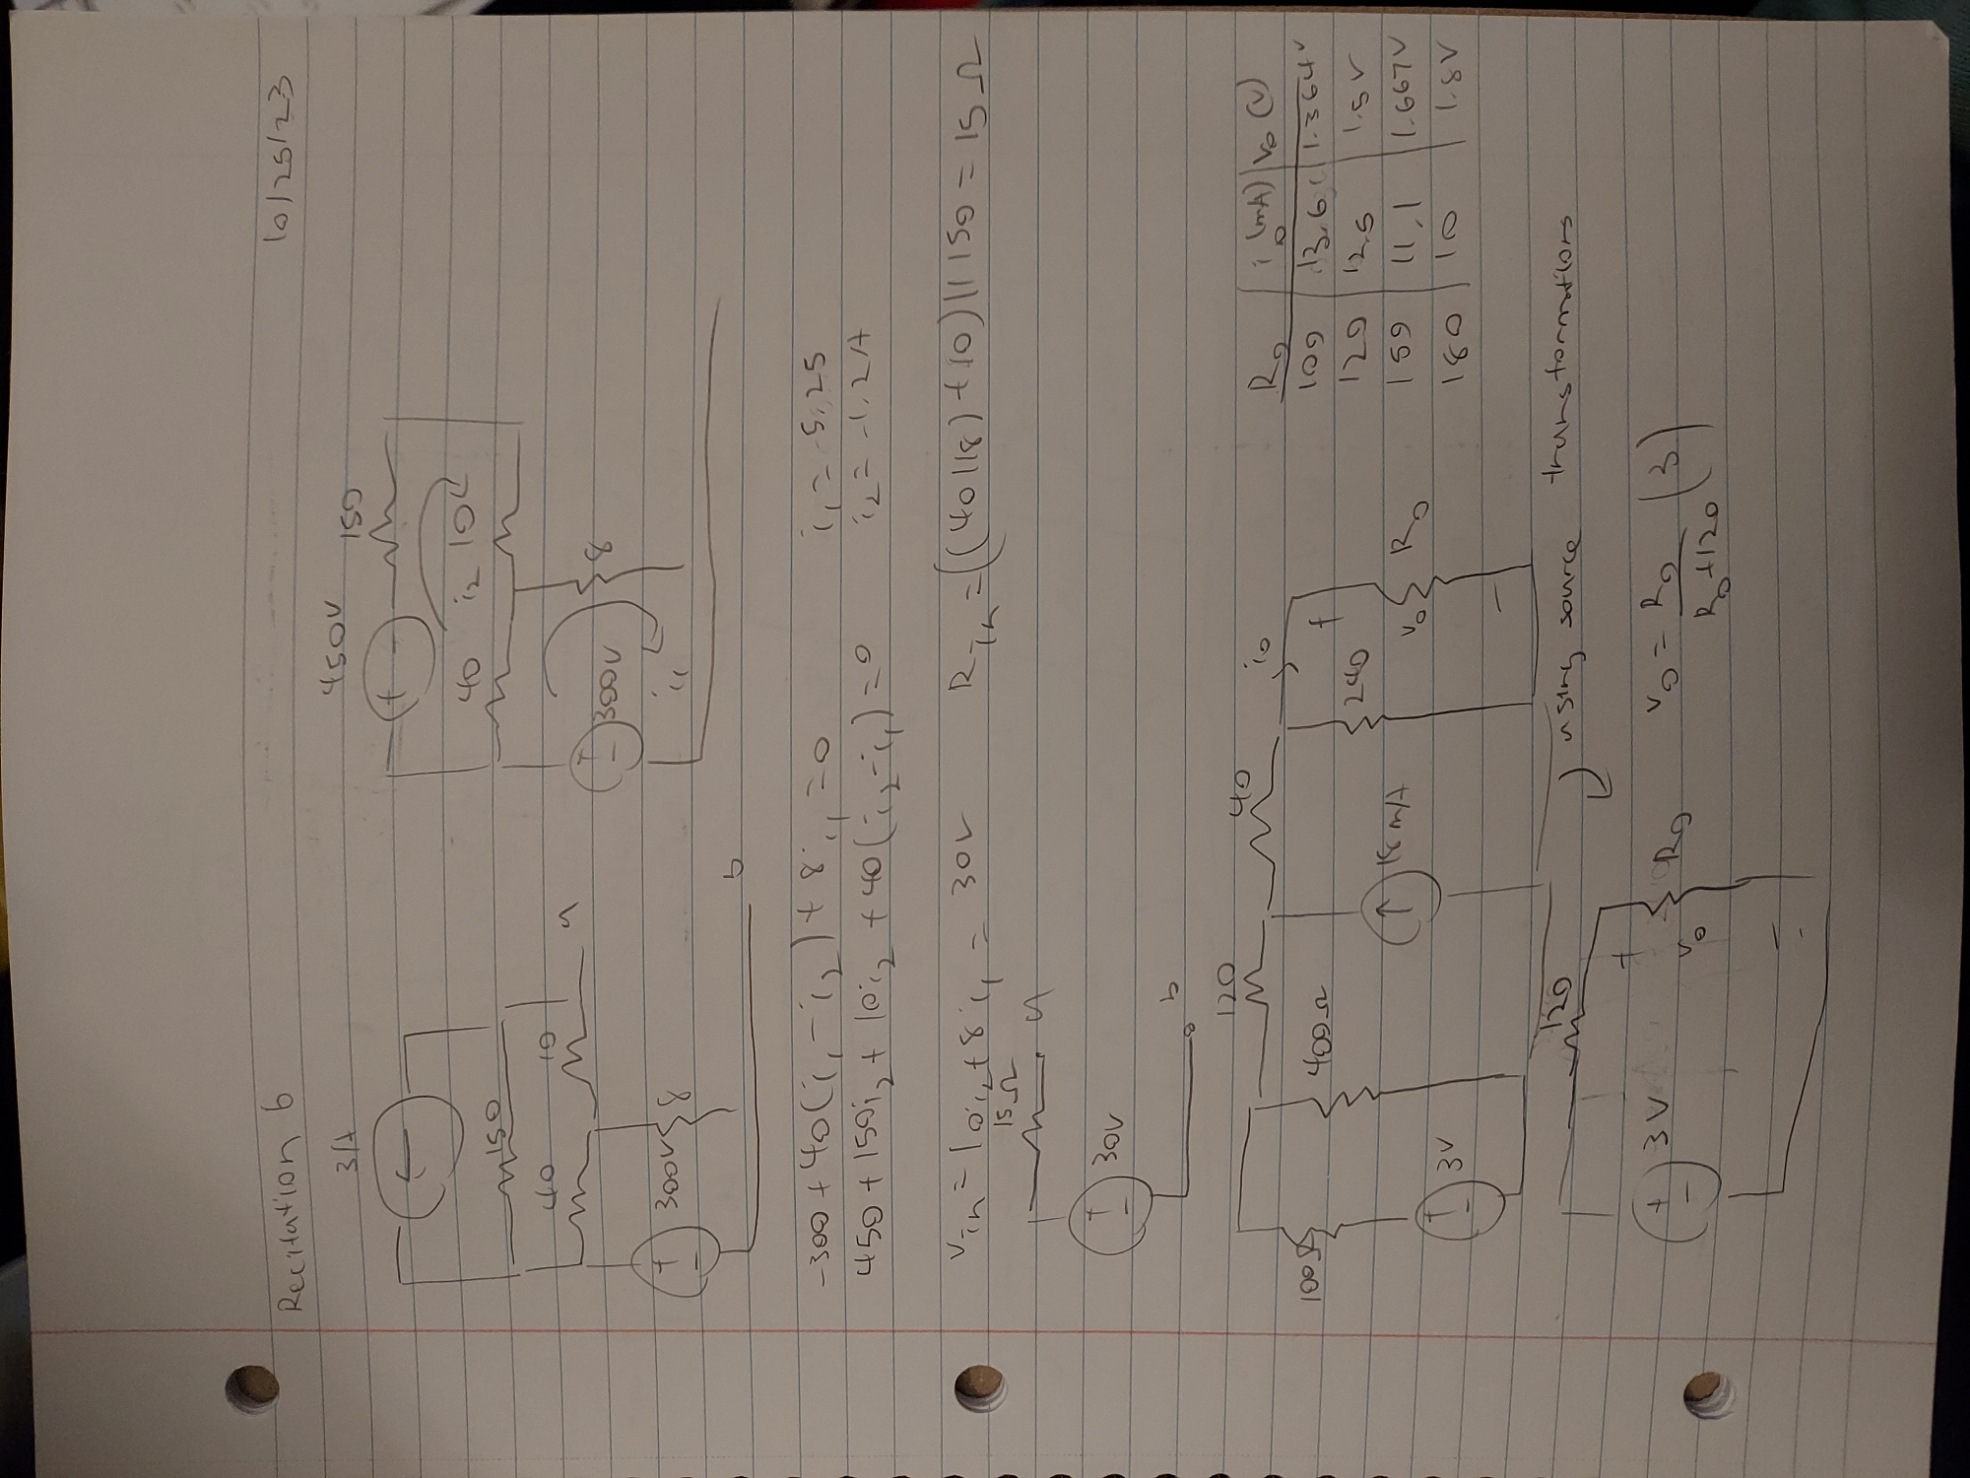 Recitation 6 10/25/23
3A
150
40 10 a
300V 8
b
450V 150
40 i₂ 10
300V 8
i₁
-300 + 40(i₁ - i₂) + 8i₁ = 0 i₁ = 5.25
450 + 150i₂ + 10i₂ + 40(i₂ - i₁) = 0 i₂ = -1.2A
Vin = 10i₂ + 8i₁ = 30V Rin = ((40||8) + 10) || 150 = 15 Ω
15Ω
a
30V
b
120 40 i₀
100Ω 400Ω + 240
18mA v₀ R₀
3V -
R₀ i₀(mA) V₀(V)
100 13.6 1.364V
120 12.5 1.5V
150 11.1 1.667V
180 10 1.8V
120 using source transformations
+
3V R₀ v₀ = R₀ / R₀+120 (3)
v₀
-